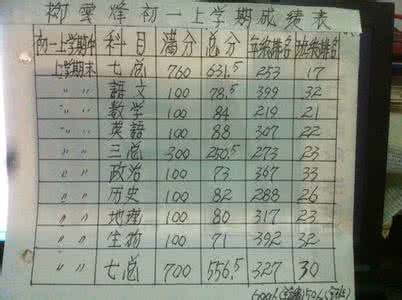 柳雲烽初一上学期成绩表
初一上学期中 科目 满分 总分 年级排名 班级排名
上学期末 七总 760 631.5 253 17
〃 〃 語文 100 78.5 399 32
〃 〃 数学 100 84 219 21
〃 〃 英語 100 88 307 22
〃 〃 三总 300 250.5 273 23
〃 〃 政治 100 73 367 33
〃 〃 历史 100 82 288 26
〃 〃 地理 100 80 317 23
〃 〃 生物 100 71 392 32
〃 〃 七总 700 556.5 327 30